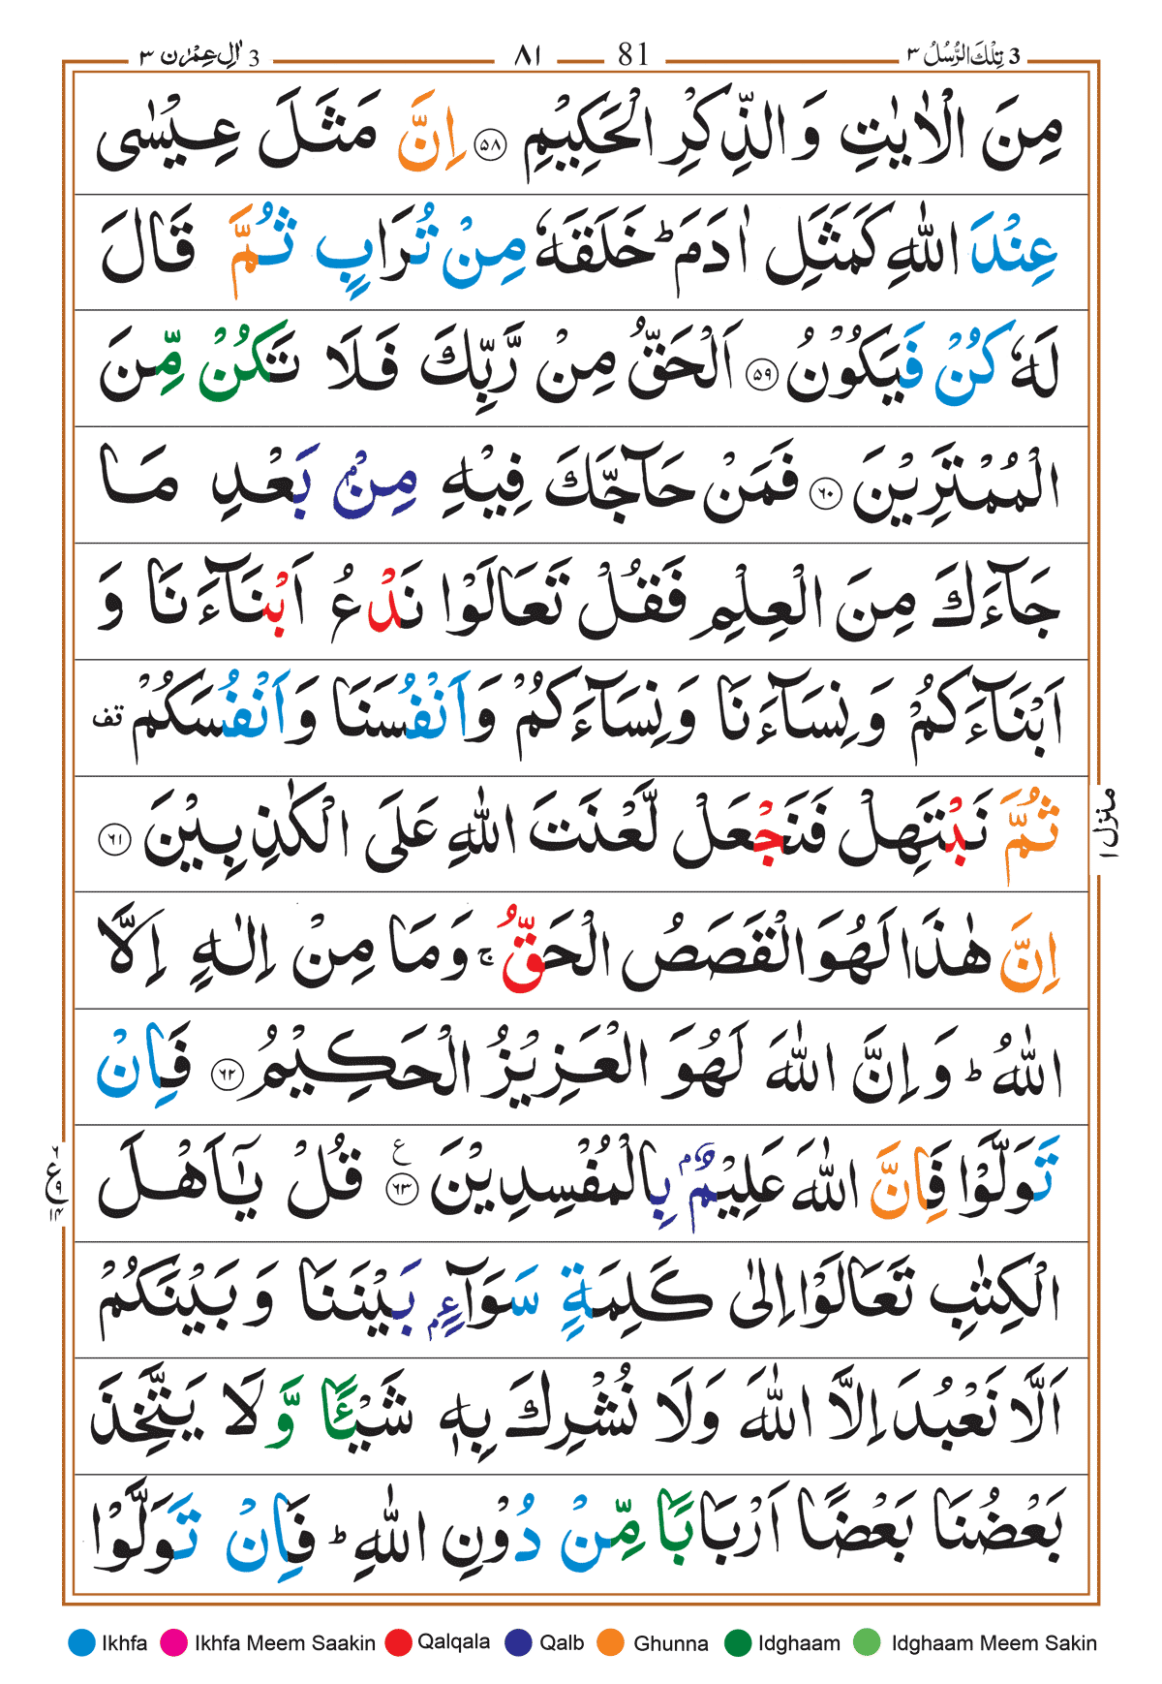 3 تِلْكَ الرُّسُلُ ٣ 81 ٨١ 3 اٰلِ عِمْرٰن ٣
مِنَ الْاٰيٰتِ وَالذِّكْرِ الْحَكِيْمِ ﴿٥٨﴾ اِنَّ مَثَلَ عِيْسٰى
عِنْدَ اللّٰهِ كَمَثَلِ اٰدَمَ ؕ خَلَقَهٗ مِنْ تُرَابٍ ثُمَّ قَالَ
لَهٗ كُنْ فَيَكُوْنُ ﴿٥٩﴾ اَلْحَقُّ مِنْ رَّبِّكَ فَلَا تَكُنْ مِّنَ
الْمُمْتَرِيْنَ ﴿٦٠﴾ فَمَنْ حَآجَّكَ فِيْهِ مِنْۢ بَعْدِ مَا
جَآءَكَ مِنَ الْعِلْمِ فَقُلْ تَعَالَوْا نَدْعُ اَبْنَآءَنَا وَ
اَبْنَآءَكُمْ وَنِسَآءَنَا وَنِسَآءَكُمْ وَاَنْفُسَنَا وَاَنْفُسَكُمْ قف
ثُمَّ نَبْتَهِلْ فَنَجْعَلْ لَّعْنَتَ اللّٰهِ عَلَى الْكٰذِبِيْنَ ﴿٦١﴾
منزل ١
اِنَّ هٰذَا لَهُوَ الْقَصَصُ الْحَقُّ ۚ وَمَا مِنْ اِلٰهٍ اِلَّا
اللّٰهُ ؕ وَاِنَّ اللّٰهَ لَهُوَ الْعَزِيْزُ الْحَكِيْمُ ﴿٦٢﴾ فَاِنْ
تَوَلَّوْا فَاِنَّ اللّٰهَ عَلِيْمٌۢ بِالْمُفْسِدِيْنَ ﴿٦٣﴾ ع قُلْ يٰٓاَهْلَ
الْكِتٰبِ تَعَالَوْا اِلٰى كَلِمَةٍ سَوَآءٍۭ بَيْنَنَا وَبَيْنَكُمْ
اَلَّا نَعْبُدَ اِلَّا اللّٰهَ وَلَا نُشْرِكَ بِهٖ شَيْـًٔا وَّلَا يَتَّخِذَ
بَعْضُنَا بَعْضًا اَرْبَابًا مِّنْ دُوْنِ اللّٰهِ ؕ فَاِنْ تَوَلَّوْا
Ikhfa Ikhfa Meem Saakin Qalqala Qalb Ghunna Idghaam Idghaam Meem Sakin